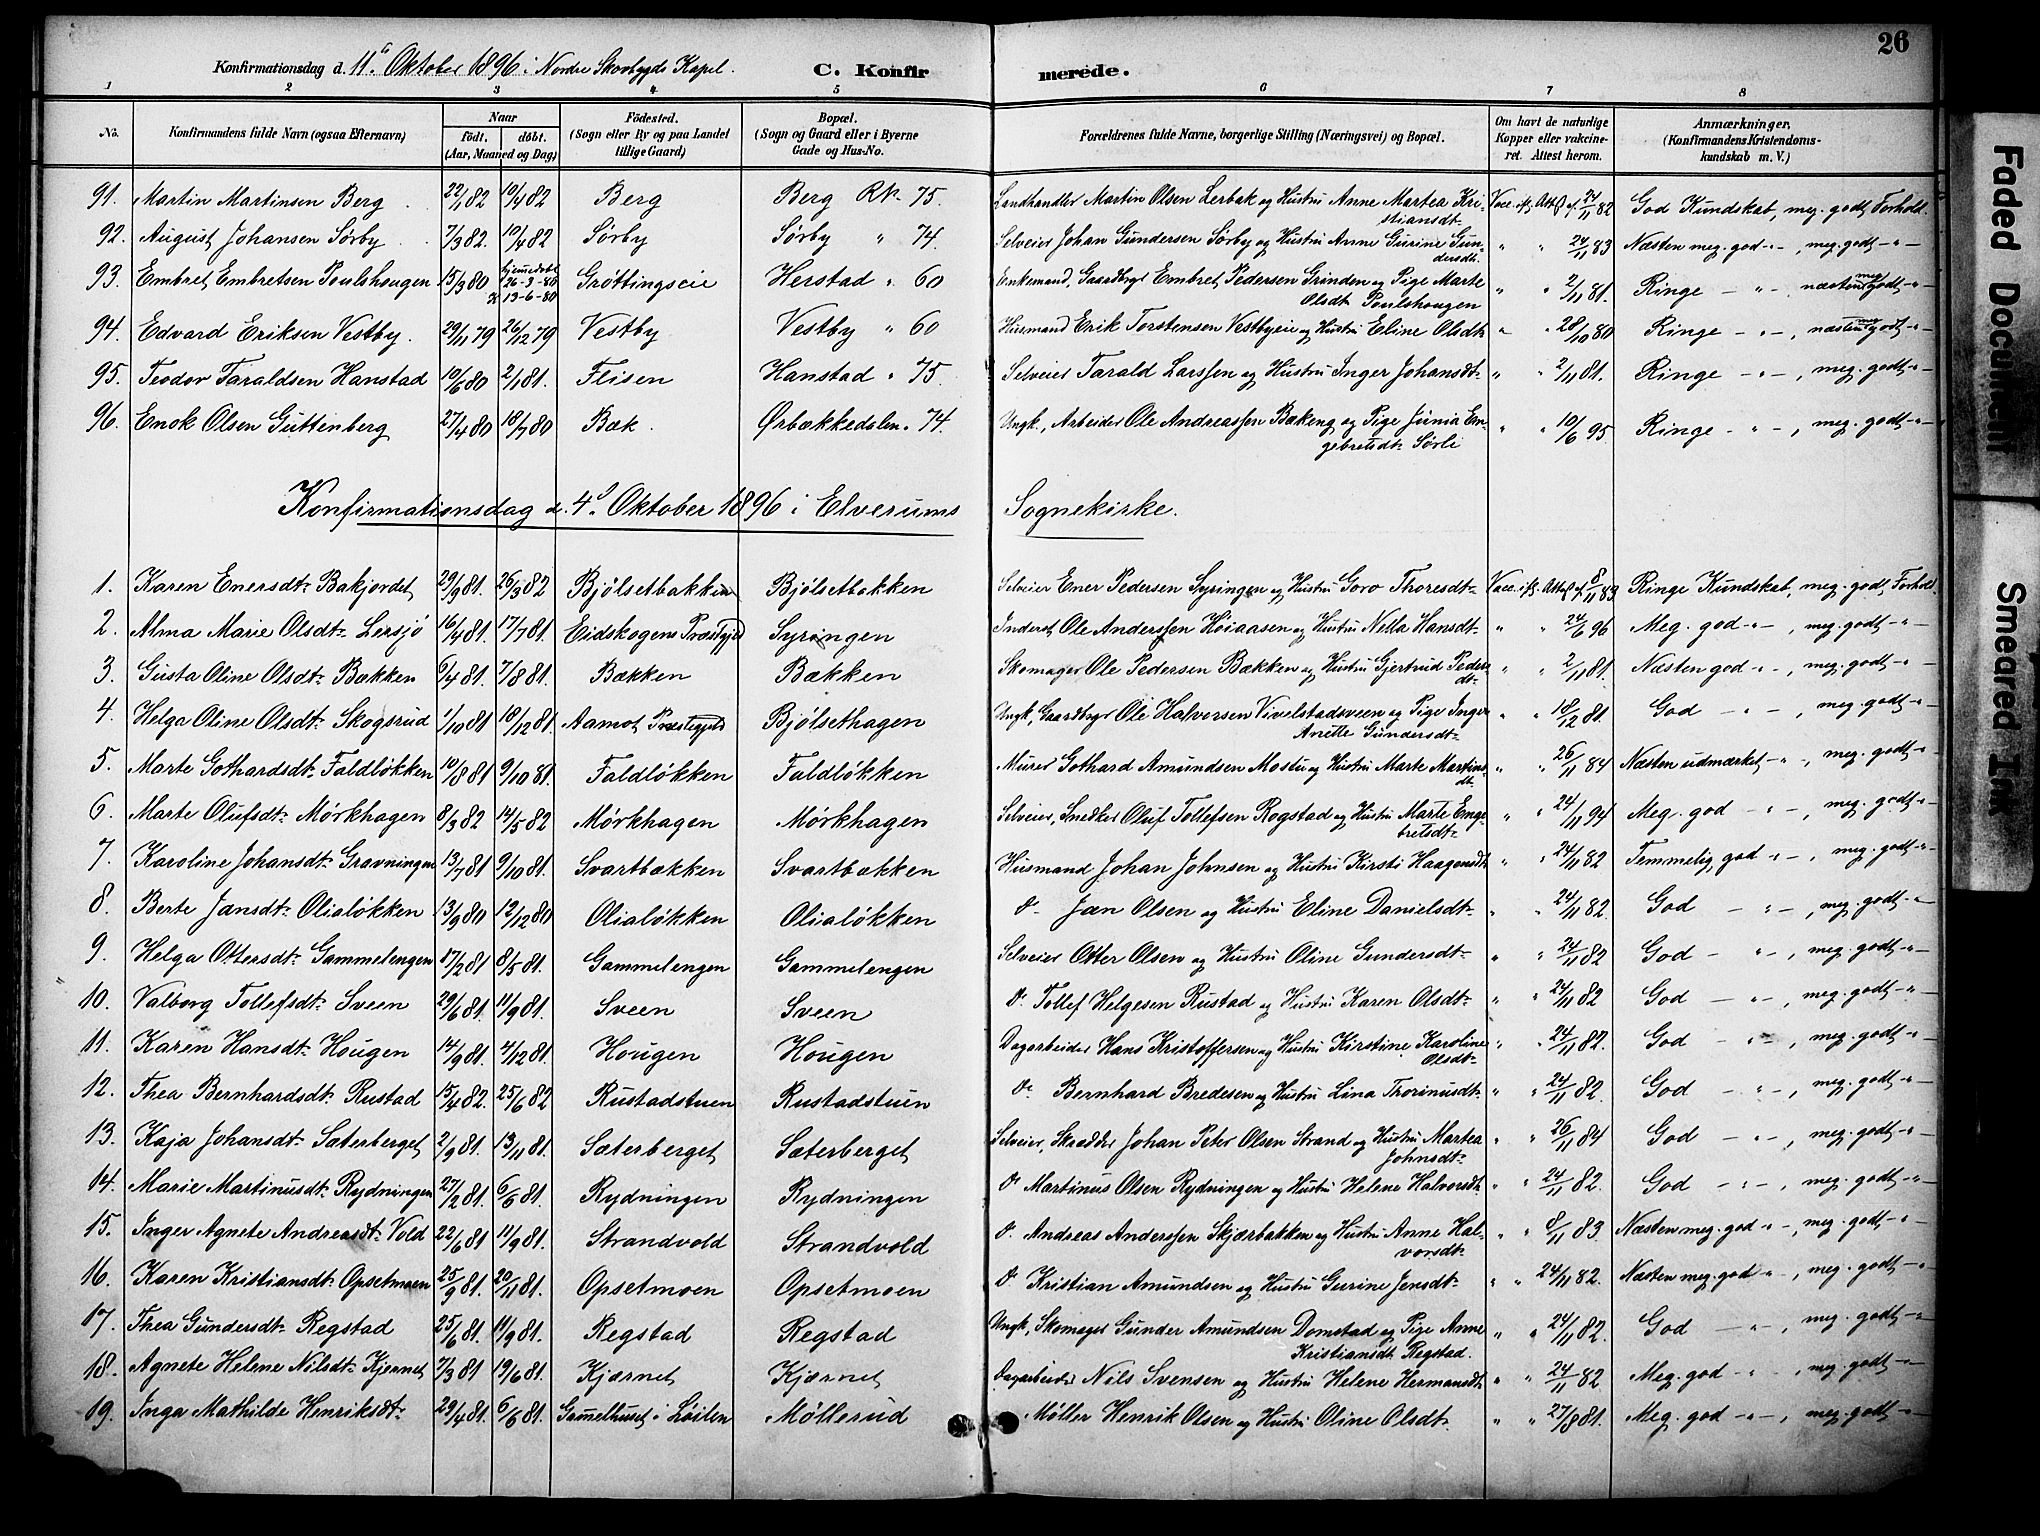 26
Konfirmationsdag d. 11te Oktober 1896 i Nordre Skovbygds Kapel. C. Konfirmerede.
1 2 3 4 5 6 7 8
No. Konfirmandens fulde Navn (ogsaa Efternavn) Naar födt. döbt. (Aar, Maaned og Dag) Födested. (Sogn eller By og paa Landet tillige Gaard) Bopæl. (Sogn og Gaard eller i Byerne Gade og Hus-No. Forældrenes fulde Navne, borgerlige Stilling (Næringsvei) og Bopæl. Om havt de naturlige Kopper eller vakcineret. Attest herom. Anmærkninger. (Konfirmandens Kristendomskundskab m. V.)
91. Martin Martinsen Berg 22/1 82 10/4 82 Berg Berg RN. 75. Landhandler Martin Olsen Lerbak og Hustru Anne Martea Kristiansdt. Vacc. ifl. Attest af 24/11 82 God Kundskab, meg. godt Forhold.
92. August Johansen Sørby 7/3 82. 10/4 82 Sørby Sørby " 74. Selveier Johan Gundersen Sørby og Hustru Anne Gurine Gundersdt. " " 24/11 83 Næsten meg. god -"-, meg. godt -"-
93. Embret Embretsen Poulshougen 15/3 80 hjemmedøbt 26-3-80 13-6-80 Grøttingseie Herstad " 60 Enkemand, Gaardbrgr Embret Pedersen Grinden og Pige Marte Olsdt. Poulshougen " " 2/11 81. Ringe -"-, næsten meg. godt -"-
94. Edvard Eriksen Vestby. 29/11 79 26/12 79 Vestby Vestby " 60 Husmand Erik Torstensen Vestbyeie og Hustru Eline Olsdt. " " 28/10 80 Ringe -"-, næsten meg. godt -"-
95. Teodor Taraldsen Hanstad 10/6 80 2/1 81. Flisen Hanstad " 75. Selveier Tarald Larssen og Hustru Inger Johansdt. " " 2/11 81. Ringe -"-, meg. godt -"-
96. Enok Olsen Guttenberg 27/4 80 18/7 80 Bæk. Ørbækkedalen " 74. Ungk., Arbeider Ole Andreassen Bækeng og Pige Junia Engebretsdt. Sørli " " 10/6 95 Ringe -"-, meg. godt -"-
Konfirmationsdag d. 4de Oktober 1896 i Elverums Sognekirke.
1. Karen Enersdt. Bakjordet 29/9 81. 26/3 82 Bjølsetbakken Bjølsetbakken Selveier Ener Pedersen Syringen og Hustru Goro Thoresdt. Vacc. ifl. Attest af 8/11 83 Ringe Kundskab, meg. godt Forhold.
2. Alma Marie Olsdt. Lersjø 16/4 81. 17/7 81. Eidskogens Præstgjd Syringen Inderst Ole Anderssen Høiaasen og Hustru Nella Hansdt. " " 24/6 96 Meg. god -"-, meg. godt -"-
3. Gusta Oline Olsdt. Bækken 6/4 81. 7/8 81. Bækken Bækken Skomager Ole Pedersen Bækken og Hustru Gjertrud Pedersdt. " " 2/11 81. Næsten god -"-, meg. godt -"-
4. Helga Oline Olsdt. Skogsrud 1/10 81 18/12 81. Aamot Præstegjeld Bjølsethagen Ungk., Gaardbrgr Ole Halvorsen Vivelstadsveen og Pige Inger Anette Gundersdt. " " 18/12 81. God -"-, meg. godt -"-
5. Marte Gothardsdt. Faldløkken 10/8 81 9/10 81. Faldløkken Faldløkken Murer Gothard Amundsen Mostu og Hustru Marte Martinsdt. " " 26/11 84 Næsten udmærket -"-, meg. godt -"-
6. Marte Olufsdt. Mørkhagen 8/3 82 14/5 82 Mørkhagen Mørkhagen Selveier, Snedker Oluf Tollefsen Rogstad og Hustru Marte Engebretsdt. " " 24/11 94 Meg. god -"-, meg. godt -"-
7. Karoline Johansdt. Gravningen 13/7 81 9/10 81. Svartbækken Svartbækken Husmand Johan Johnsen og Hustru Kirsti Haagensdt. " " 24/11 82 Temmelig god -"-, meg. godt -"-
8. Berte Jansdt. Olialøkken 13/9 80 12/12 80 Olialøkken Olialøkken do. Jan Olsen og Hustru Eline Danielsdt. " " 24/11 82. God -"-, meg. godt -"-
9. Helga Ottersdt. Gammelengen 17/2 81 8/5 81. Gammelengen Gammelengen Selveier Otter Olsen og Hustru Oline Gundersdt. " " 24/11 82 God -"-, meg. godt -"-
10. Valborg Tollefsdt. Sveen 29/6 81. 11/9 81. Sveen Sveen do. Tollef Helgesen Rustad og Hustru Karen Olsdt. " " 24/11 82 God -"-, meg. godt -"-
11. Karen Hansdt. Hougen 14/9 81. 4/12 81. Hougen Hougen Dagarbeider Hans Kristoffersen og Hustru Kirstine Karoline Olsdt. " " 24/11 82. God -"-, meg. godt -"-
12. Thea Bernhardsdt. Rustad 15/4 82. 25/6 82 Rustadstuen Rustadstuen do. Bernhard Bredesen og Hustru Lina Thorinusdt. " " 24/11 82. God -"-, meg. godt -"-
13. Kaja Johansdt. Sæterberget 2/9 81. 13/11 81. Sæterberget Sæterberget Selveier, Skrædder Johan Peter Olsen Strand og Hustru Martea Johnsdt. " " 26/11 84 God -"-, meg. godt -"-
14. Marie Martinusdt. Rydningen 27/2 81. 6/6 81. Rydningen Rydningen do. Martinus Olsen Rydningen og Hustru Helene Halvorsdt. " " 24/11 82. God -"-, meg. godt -"-
15. Inger Agnete Andreasdt. Vold 22/6 81 11/9 81. Strandvold Strandvold do. Andreas Anderssen Skjærbakken og Hustru Anne Halvorsdt. " " 8/11 83 Næsten meg. god -"-, meg. godt -"-
16. Karen Kristiansdt. Opsetmoen 25/9 81. 20/11 81. Opsetmoen Opsetmoen do. Kristian Amundsen og Hustru Gurine Jensdt. " " 24/11 82. Næsten meg. god -"-, meg. godt -"-
17. Thea Gundersdt. Regstad 25/6 81. 11/9 81. Regstad Regstad Ungk., Skomager Gunder Amundsen Domstad og Pige Anne Kristiansdt. Regstad. " " 24/11 82. God -"-, meg. godt -"-
18. Agnete Helene Nilsdt. Kjernet 7/3 81 19/6 81. Kjærnet Kjærnet Dagarbeider Nils Svensen og Hustru Helene Hermansdt. " " 24/11 82 Meg. god -"-, meg. godt -"-
19. Inga Mathilde Henriksdt. 29/4 81. 6/6 81. Gamelhuset i Løiten Møllerud Møller Henrik Olsen og Hustru Oline Olsdt. " " 27/8 81. Meg. god -"-, meg. godt -"-
Faded Document
Smeared Ink